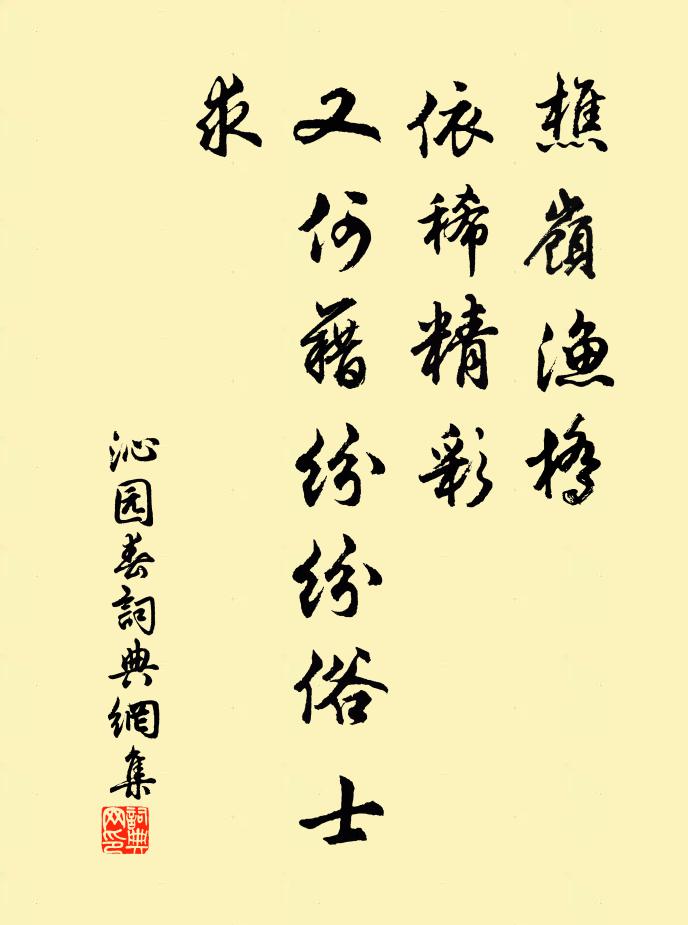 樵嶺漁橋
依稀精彩
又何藉紛紛俗士
求
沁园春詞典網集
詞典网印